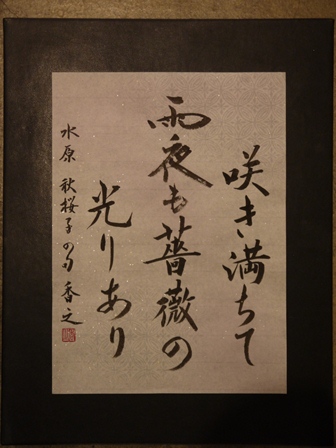 咲き満ちて
雨夜も薔薇の
光りあり
水原 秋桜子の句 香之